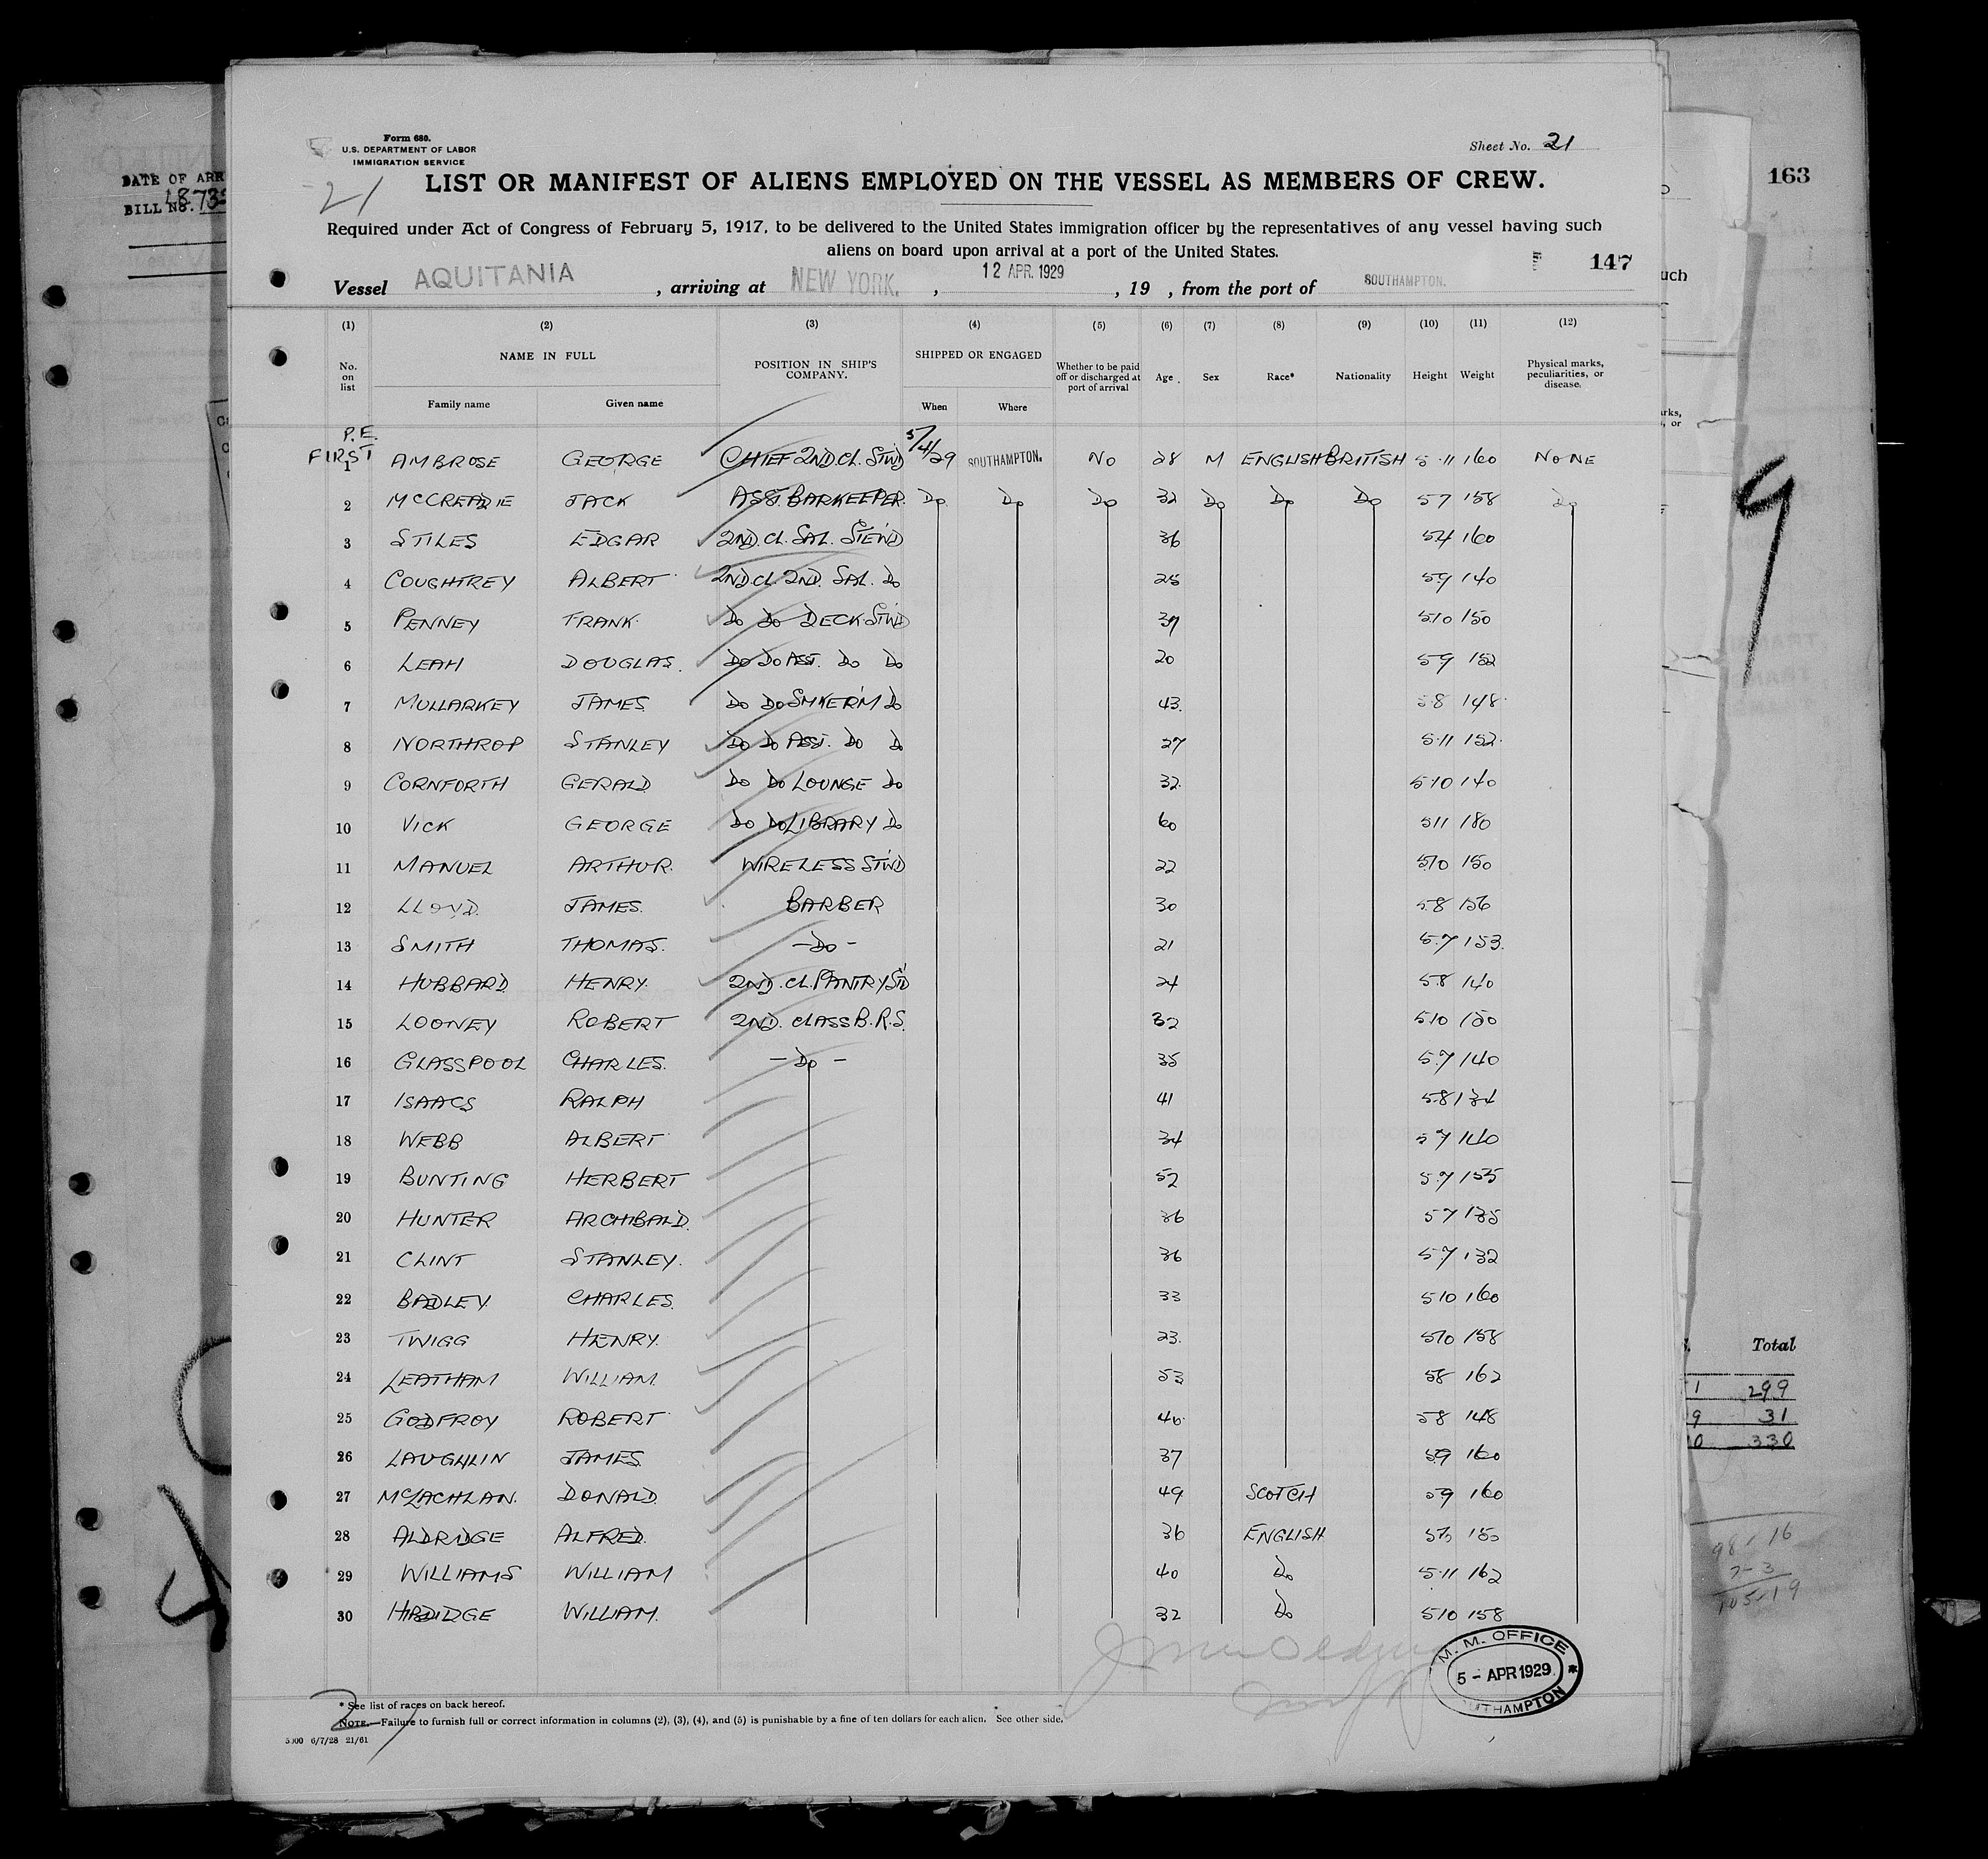 Form 680.
U.S. DEPARTMENT OF LABOR
IMMIGRATION SERVICE
Sheet No. 21
21
LIST OR MANIFEST OF ALIENS EMPLOYED ON THE VESSEL AS MEMBERS OF CREW.
Required under Act of Congress of February 5, 1917, to be delivered to the United States immigration officer by the representatives of any vessel having such
aliens on board upon arrival at a port of the United States.
147
Vessel AQUITANIA, arriving at NEW YORK., 12 APR. 1929, 19 , from the port of SOUTHAMPTON.
(1) (2) (3) (4) (5) (6) (7) (8) (9) (10) (11) (12)
No. on list NAME IN FULL Family name Given name POSITION IN SHIP'S COMPANY. SHIPPED OR ENGAGED When Where Whether to be paid off or discharged at port of arrival Age Sex Race* Nationality Height Weight Physical marks, peculiarities, or disease.
P.E.
FIRST
1 AMBROSE GEORGE CHIEF 2ND.CL. STWD 5/4/29 SOUTHAMPTON. NO 28 M ENGLISH BRITISH 5 11 160 NONE
2 McCREADIE JACK ASST. BARKEEPER. Do Do Do 32 Do Do Do 5 7 158 Do
3 STILES EDGAR 2ND. CL. SAL. STEWD 36 54 160
4 COUGHTREY ALBERT 2ND CL 2ND. SAL. Do 25 59 140
5 PENNEY FRANK Do Do DECK STWD 39 510 150
6 LEAH DOUGLAS. Do Do ASST. Do Do 20 59 152
7 MULLARKEY JAMES Do Do SMKE R'M Do 43. 58 148
8 NORTHROP STANLEY Do Do ASST. Do Do 27 5·11 152
9 CORNFORTH GERALD Do Do LOUNGE Do 32. 510 140
10 VICK GEORGE Do Do LIBRARY Do 60 511 180
11 MANUEL ARTHUR. WIRELESS STWD 22 510 150
12 LLOYD. JAMES. BARBER 30 58 156
13 SMITH THOMAS. - Do - 21 5.7 153.
14 HUBBARD HENRY. 2ND. CL. PANTRY STD 24 58 140
15 LOONEY ROBERT 2ND. CLASS B.R.S. 32 510 150
16 GLASSPOOL CHARLES. - Do - 35 5.7 140
17 ISAACS RALPH 41 58 134
18 WEBB ALBERT 34 57 140
19 BUNTING HERBERT 52 5.7 155
20 HUNTER ARCHIBALD. 36 57 135
21 CLINT STANLEY. 36 57 132
22 BADLEY. CHARLES. 33 510 160
23 TWIGG HENRY. 23. 510 158
24 LEATHAM WILLIAM. 53 58 162
25 GODFROY ROBERT 46 58 148
26 LAUGHLIN JAMES 37 59 160
27 McLACHLAN. DONALD. 49 SCOTCH 59 160
28 ALDRIDGE ALFRED. 36 ENGLISH 150
29 WILLIAMS WILLIAM 40 Do 5·11 162
30 WILLIAM. 32 Do 510 158
M. M. OFFICE
5 - APR 1929
SOUTHAMPTON
* See list of races on back hereof.
NOTE.—Failure to furnish full or correct information in columns (2), (3), (4), and (5) is punishable by a fine of ten dollars for each alien. See other side.
5000 6/7/28 21/61
DATE OF ARR
BILL NO.
163
uch
rks,
, or
Total
1 299
9 31
0 330